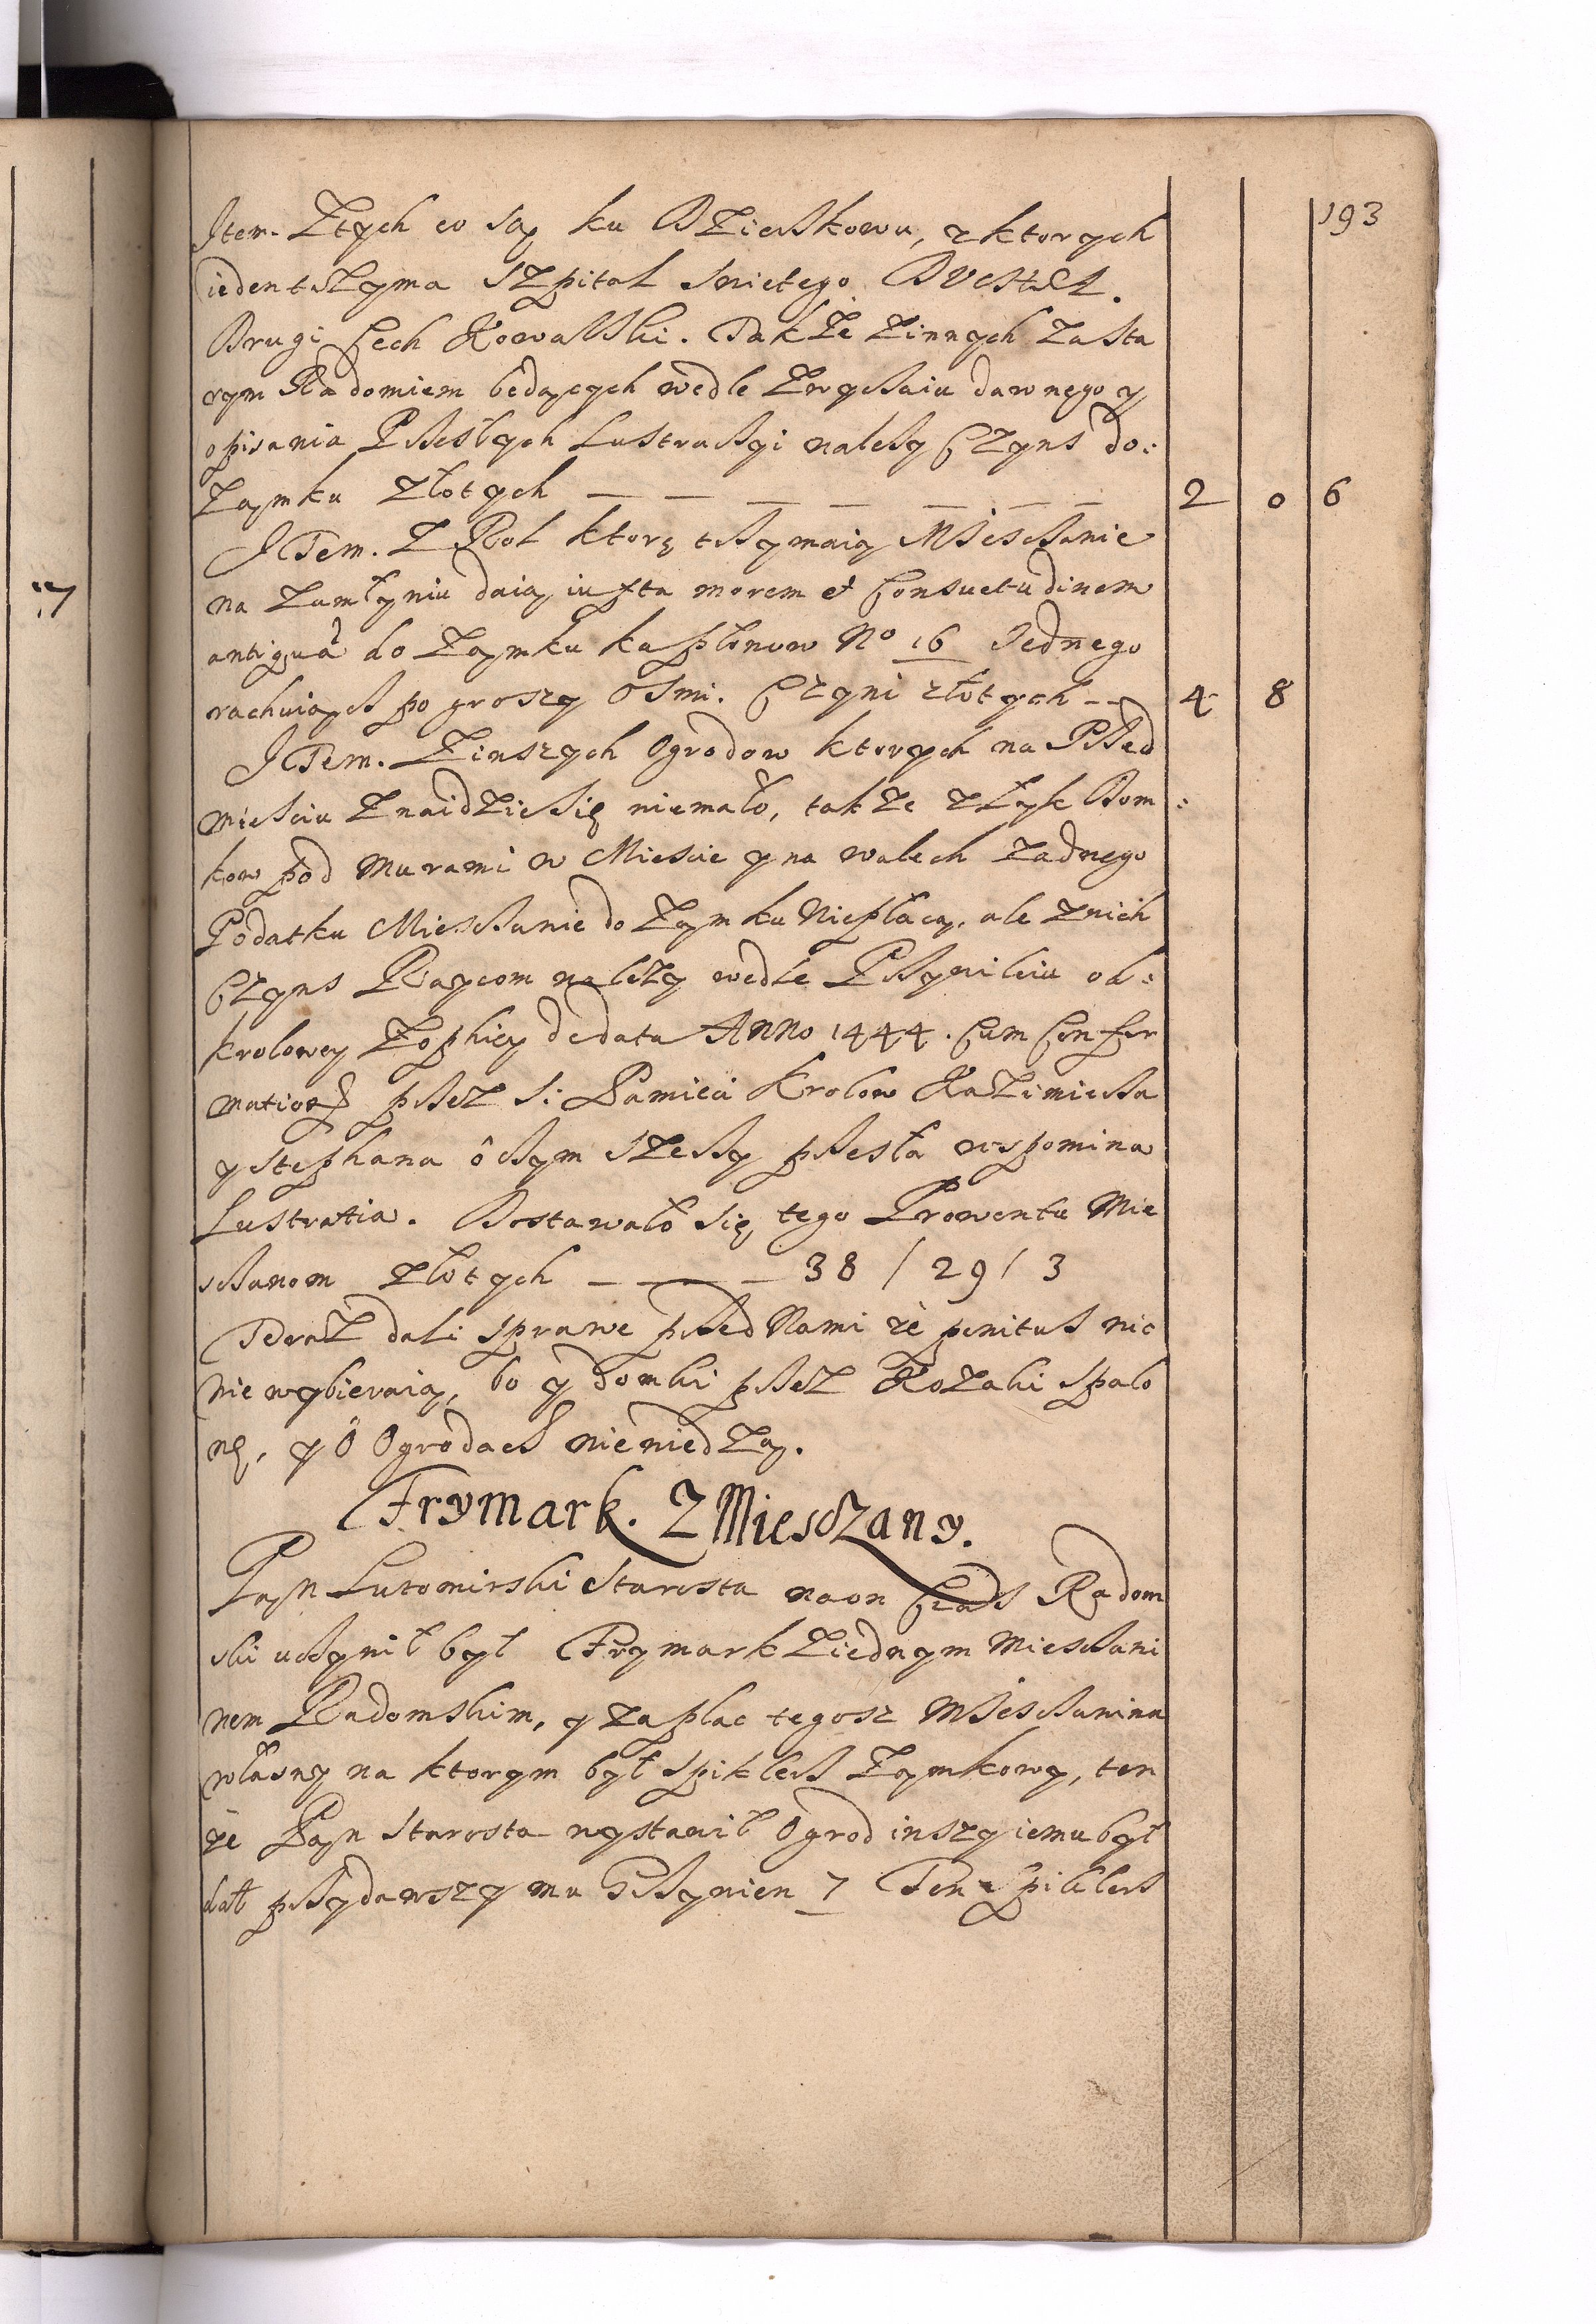 193
Item. Ztych co są ku Dzierzkowu, z ktorych
ieden trzyma Szpital Swietego Ducha.
Drugi Cech Kowalski. Takze Zinnych Zasta
rym Radomiem bedących wedle Zwyczaiu dawnego y
opisania Przeszłych Lustraczyi nalezy Czyns do:
Zamku złotych — — — — — — — 2 0 6
ITem. Z Rol ktorę trzymaią Miesczanie
na Zamłyniu daią iuxta morem et Consuetudinem
antiquã do Zamku kapłonow No 16 Jednego
rachuiącz po groszy Osmi. Czyni złotych — 4 8
ITem. Zinszych Ogrodow ktorych na Przed
miesciu Znaidzie się niemało, takze z Dom:
kow pod Murami w Miescie y na walech Zadnego
Podatku Miesczanie do Zamku Niepłacą, ale Znich
Czyns Raycom nalezy wedle Przywileiu od:
krolowey Zophiey de data Anno 1444. Cum Confir
matioē przez S: Pamieci Krolow Kazimierza
y Stephana o czym szerzy przeszła wspomina
Lustratia. Dostawało się tego Prowentu Mie
sczanom złotych — — — 38 / 29 / 3
Teraz dali sprawe przed Nami ze penitus nic
nie wybieraią, bo y domki przez Kozaki spalo
nę, y o Ogrodach nie wiedzą.
Frymark. Z Miesczany.
Pan Lutomirski Starosta na on Czas Radom
ski uczynił był Frymark Ziednym Miesczani
nem Radomskim, y za plac tegosz Miesczanina
własny na ktorym był Spiklerz Zamkowy, ten
ze Pan Starosta wystawił Ogrod inszy iemu był
dał przydawszy mu Grzywien 7 Ten Spiklerz